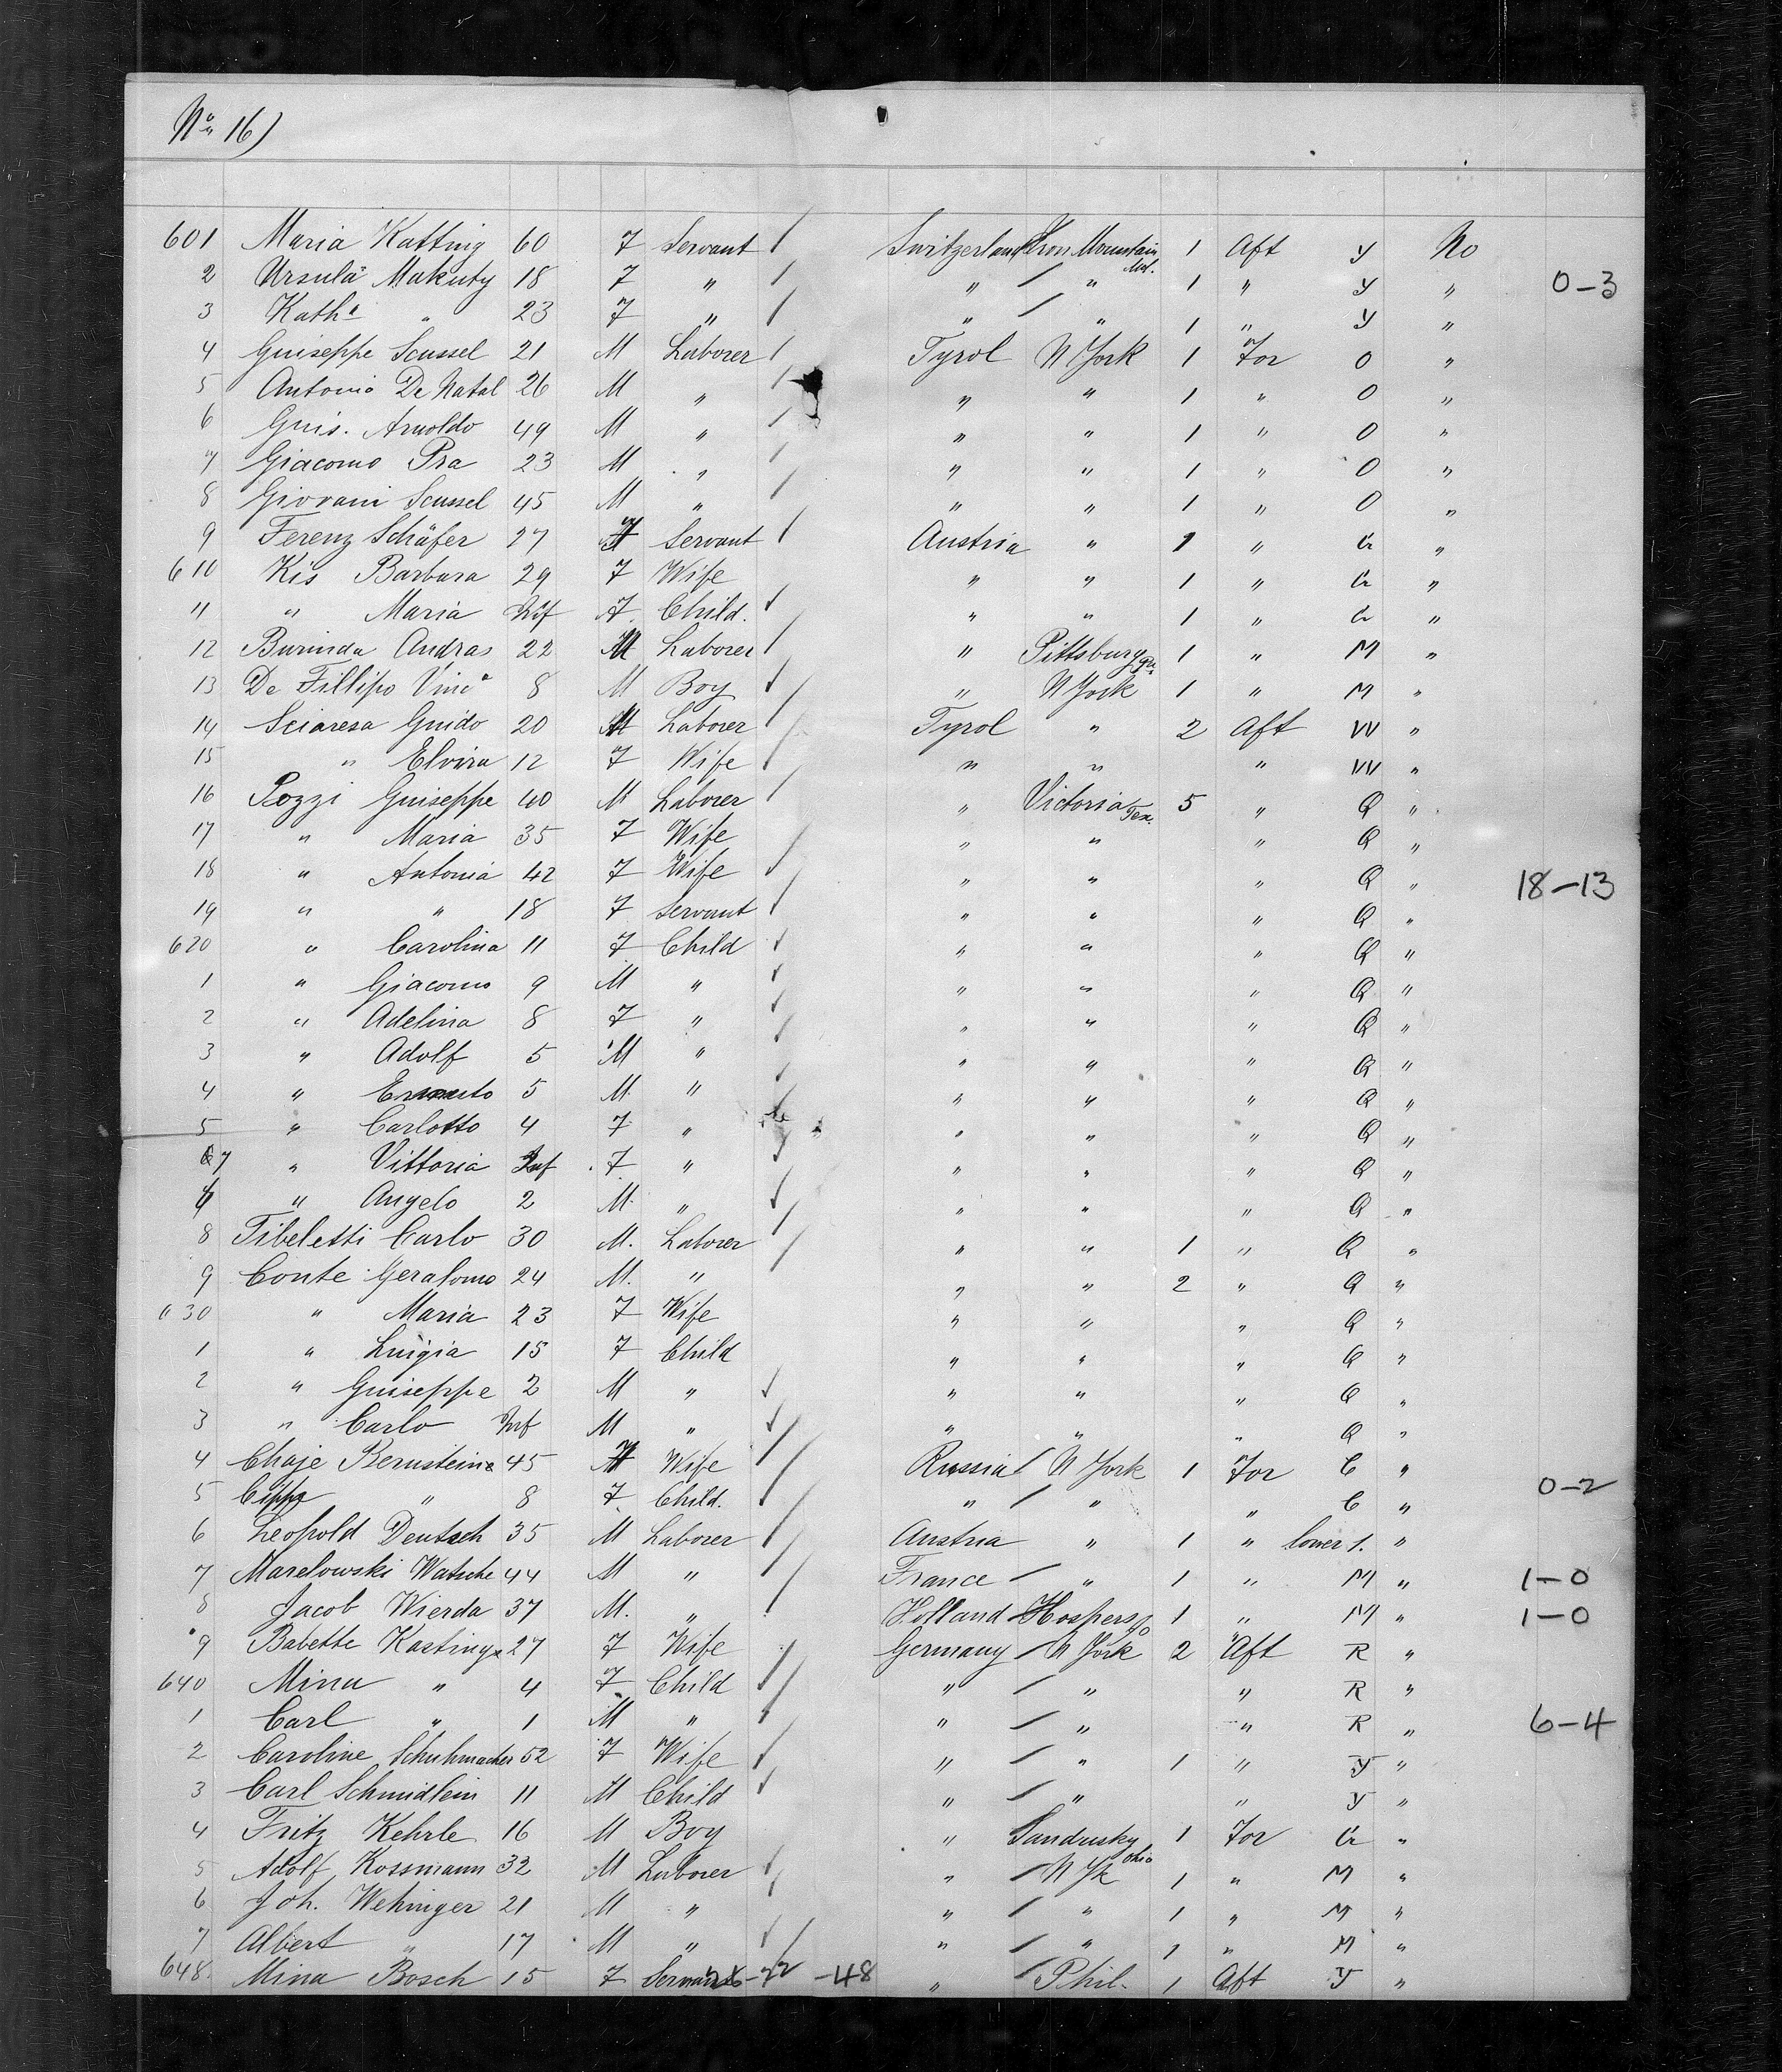 No 16)
601 Maria Katting 60 F Servant / Switzerland Iron Mountain Mi. 1 Aft Y No
2 Ursula Makuty 18 F " / " / " 1 " Y " 0-3
3 Katha " 23 F " / " / " 1 " Y "
4 Guiseppe Scussel 21 M Laborer / Tyrol N York 1 For O "
5 Antonio De Natal 26 M " / " " 1 " O "
6 Guis. Arnoldo 49 M " / " " 1 " O "
7 Giacomo Pra 23 M " / " " 1 " O "
8 Giovani Scussel 45 M " / " " 1 " O "
9 Ferenz Schäfer 27 Servant / Austria " 1 " G "
610 Kis Barbara 29 F Wife " " 1 " G "
11 " Maria Inf F Child. / " " 1 " G "
12 Burinda Andras 22 M Laborer / " Pittsburg Pa. 1 " M "
13 De Fillipo Vinca 8 M Boy / " N York 1 " M "
14 Sciaresa Guido 20 M Laborer / Tyrol " 2 Aft W "
15 " Elvira 12 F Wife / " " " W "
16 Pozzi Guiseppe 40 M Laborer / " Victoria Tex. 5 " Q "
17 " Maria 35 F Wife / " " " Q "
18 " Antonia 42 F Wife / " " " Q " 18-13
19 " " 18 F Servant / " " " Q "
620 " Carolina 11 F Child / " " " Q "
1 " Giacomo 9 M " / " " " Q "
2 " Adelina 8 F " / " " " Q "
3 " Adolf 5 M " " " " Q "
4 " Ernesto 5 M " / " " " Q "
5 " Carlotto 4 F " " " " Q "
7 " Vittoria Inf F " / " " " Q "
6 " Angelo 2 M. " / " " " Q "
8 Tibeletti Carlo 30 M. Laborer / " " 1 " Q "
9 Conte Geralomo 24 M. " " " 2 " Q "
630 " Maria 23 F Wife " " " Q "
1 " Luigia 15 F Child " " " Q "
2 " Guiseppe 2 M " / " " " Q "
3 " Carlo Inf M " / " " " Q "
4 Chaje Bernstein 45 Wife / Russia / N York 1 For C "
5 " 8 F Child. / " / " " C " 0-2
6 Leopold Deutsch 35 M Laborer / Austria " 1 " lower 1. "
7 Marelowski Watsche 44 M " / France / " 1 " M " 1-0
8 Jacob Wierda 37 M. " Holland Hospers Jo 1 " M " 1-0
9 Babette Kasting 27 F Wife / Germany / N York 2 Aft R "
640 Mina " 4 F Child / " / " " R "
1 Carl " 1 M " / " / " " R " 6-4
2 Caroline Schuhmacher 52 F Wife / " / " 1 " Y "
3 Carl Schmidlein 11 M Child / " / " " Y "
4 Fritz Kehrle 16 M Boy " Sandusky Ohio 1 For G "
5 Adolf Kossmann 32 M Laborer / " / N Yk 1 " M "
6 Joh. Wehinger 21 M " " / " 1 " M "
7 Albert " 17 M " / " / " 1 " M "
648 Mina Bosch 15 F -48 " / Phil. 1 Aft Y "